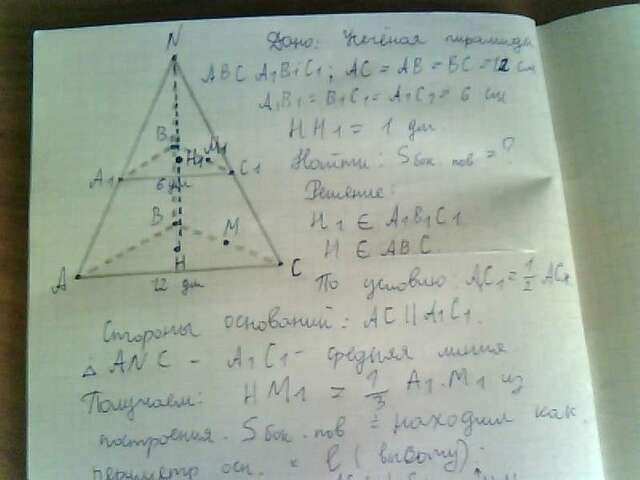 N
Дано: Усечёная пирамида
ABC A1B1C1; AC = AB = BC = 12 см
A1B1 = B1C1 = A1C1 = 6 см
HH1 = 1 дм
Найти: Sбок. пов = ?
Решение:
H1 ∈ A1B1C1
H ∈ ABC
По условию A1C1 = 1/2 AC
B1
H1
M1
A1
C1
6 дм
B
M
A
H
C
12 дм
Стороны оснований: AC || A1C1.
△ ANC - A1C1 - средняя линия
Получаем: HM1 = 1/3 A1·M1 из
построения. Sбок. пов = находим как
периметр осн. × l (высоту).